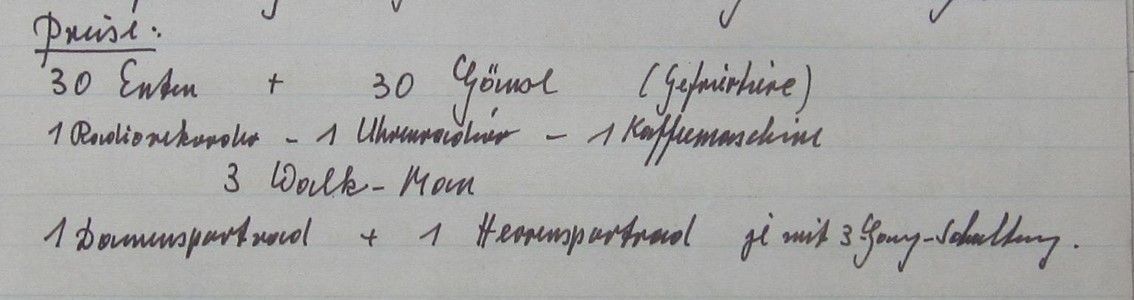 Preise:
30 Enten + 30 Gänse (Gefriertiere)
1 Radiorekorder - 1 Uhrenradio - 1 Kaffeemaschine
3 Walk-Man
1 Damensportrad + 1 Herrensportrad je mit 3 Gang-Schaltung.